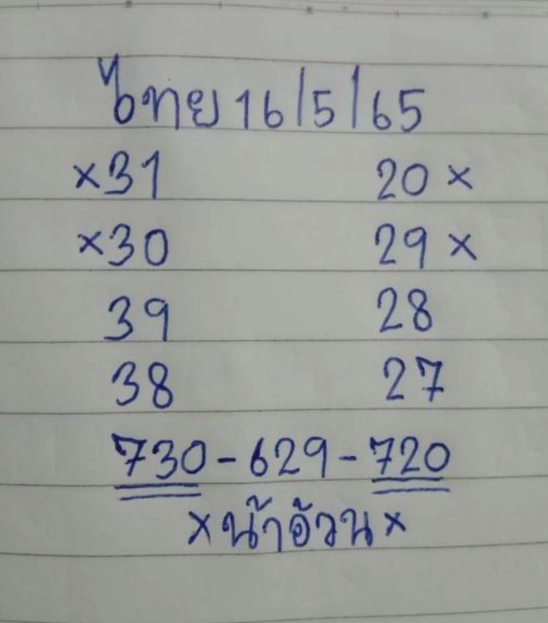 ไทย 16/5/65
×31 20×
×30 29×
39 28
38 27
730-629-720
×น้าอ้วน×